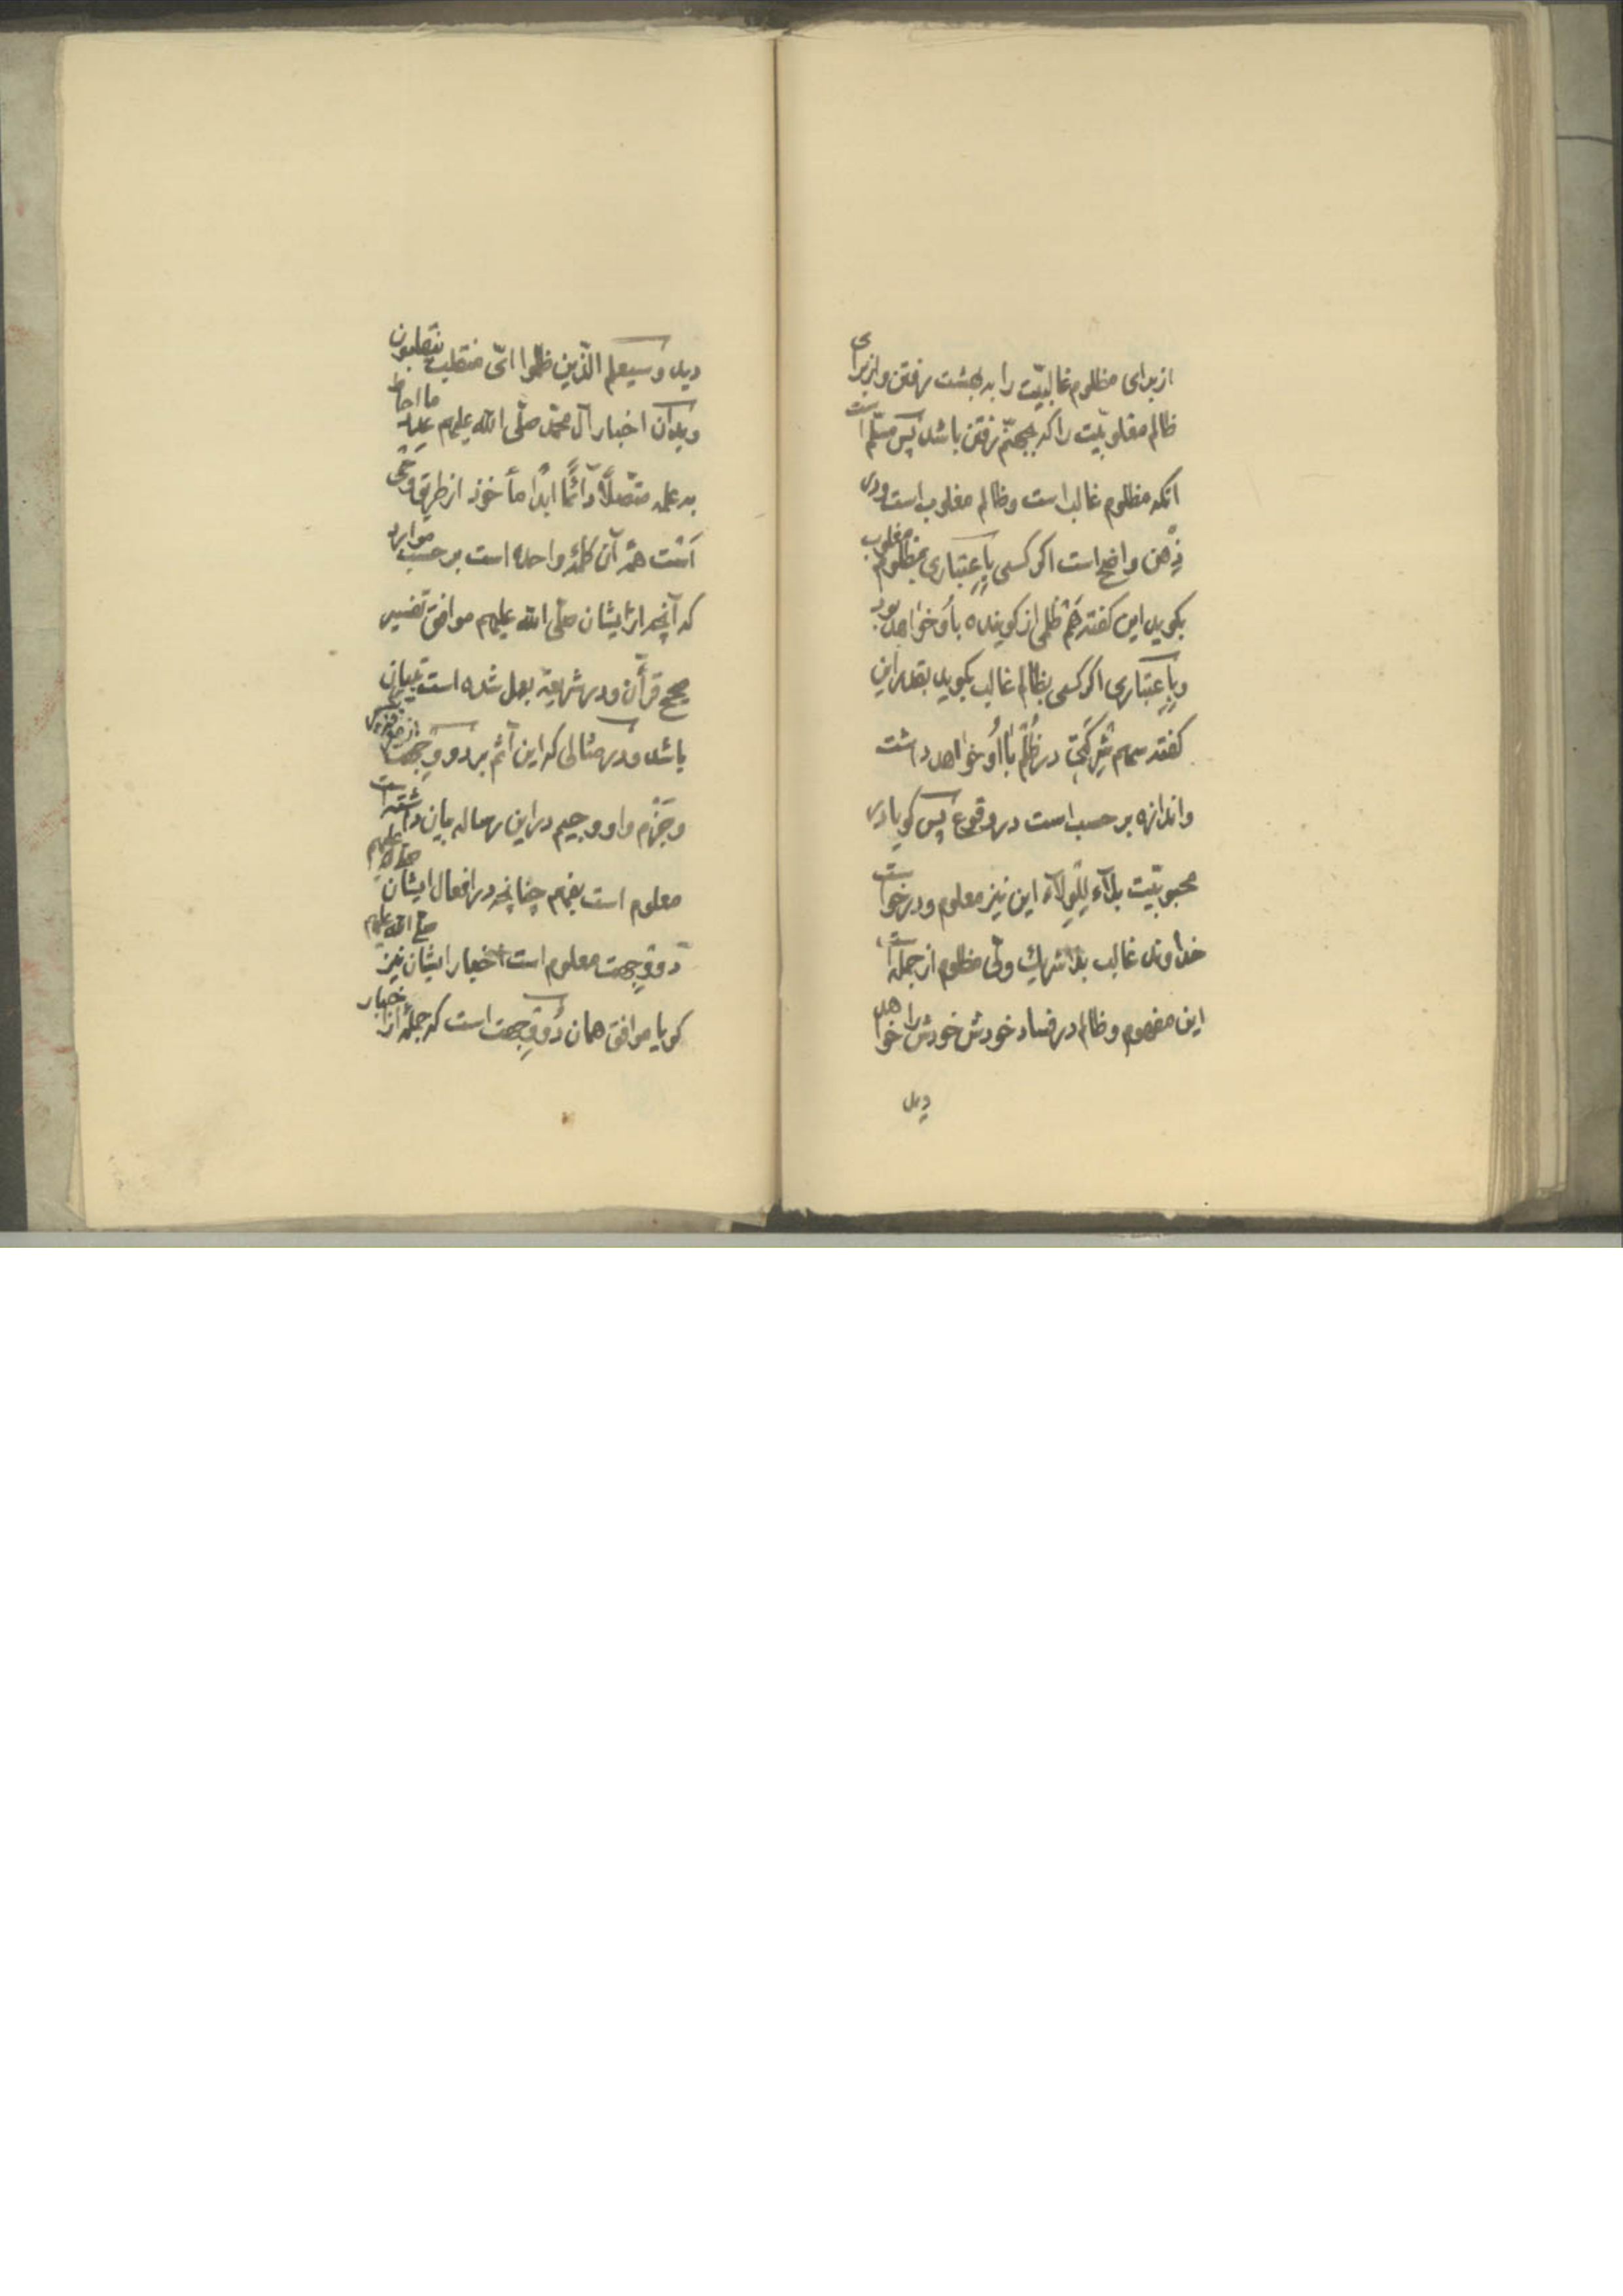 از برای مظلوم غالبیّت را به بهشت رفتن و از برای
ظالم مغلوبیّت را که بجهنّم رفتن باشد پس مسلّم است
انکه مظلوم غالب است و ظالم مغلوب است و در
ذهن واضح است اکر کسی باعتباری بمظلوم مغلوب
بکوید این کفته هم ظلمی از کوینده باو خواهد بود
و باعتباری اکر کسی بظالم غالب بکوید بقدر این
کفته سهام شرکتی در ظلم با او خواهد داشت
و اندازه بر حسب است در وقوع پس کویا در
محبوبیّت بلاء للولاء این نیز معلوم و درخواست
خداوند غالب بلا شریك ولّی مظلوم از جمله است
این مفهوم و ظالم در فساد خودش خودش را خواهد
دید
دید و سیعلم الّذین ظلموا ایّ منقلب ینقلبون
و بدان اخبار آل محمّد صلّی الله علیهم عدد ما احاط
به علمه متّصلاً دآئماً ابداً مأخوذ از طریق وحی
است همه آن کلمهٔ واحده است بر حسب موارد
که آنچه از ایشان صلّی الله علیهم موافق تفسیر
صحیح قرآن و در شریعة بعمل شده است تبیان
باشد و در مثالی که این آثم بر دو وجهت
و جزم واو و جیم در این رساله بیان داشته است
معلوم است بفهم چنانچه در افعال ایشان صلّی الله علیهم
دو وجهت معلوم است اخبار ایشان نیز صلّی الله علیهم
کویا موافق همان دو وجهت است که جملهٔ از اخبار